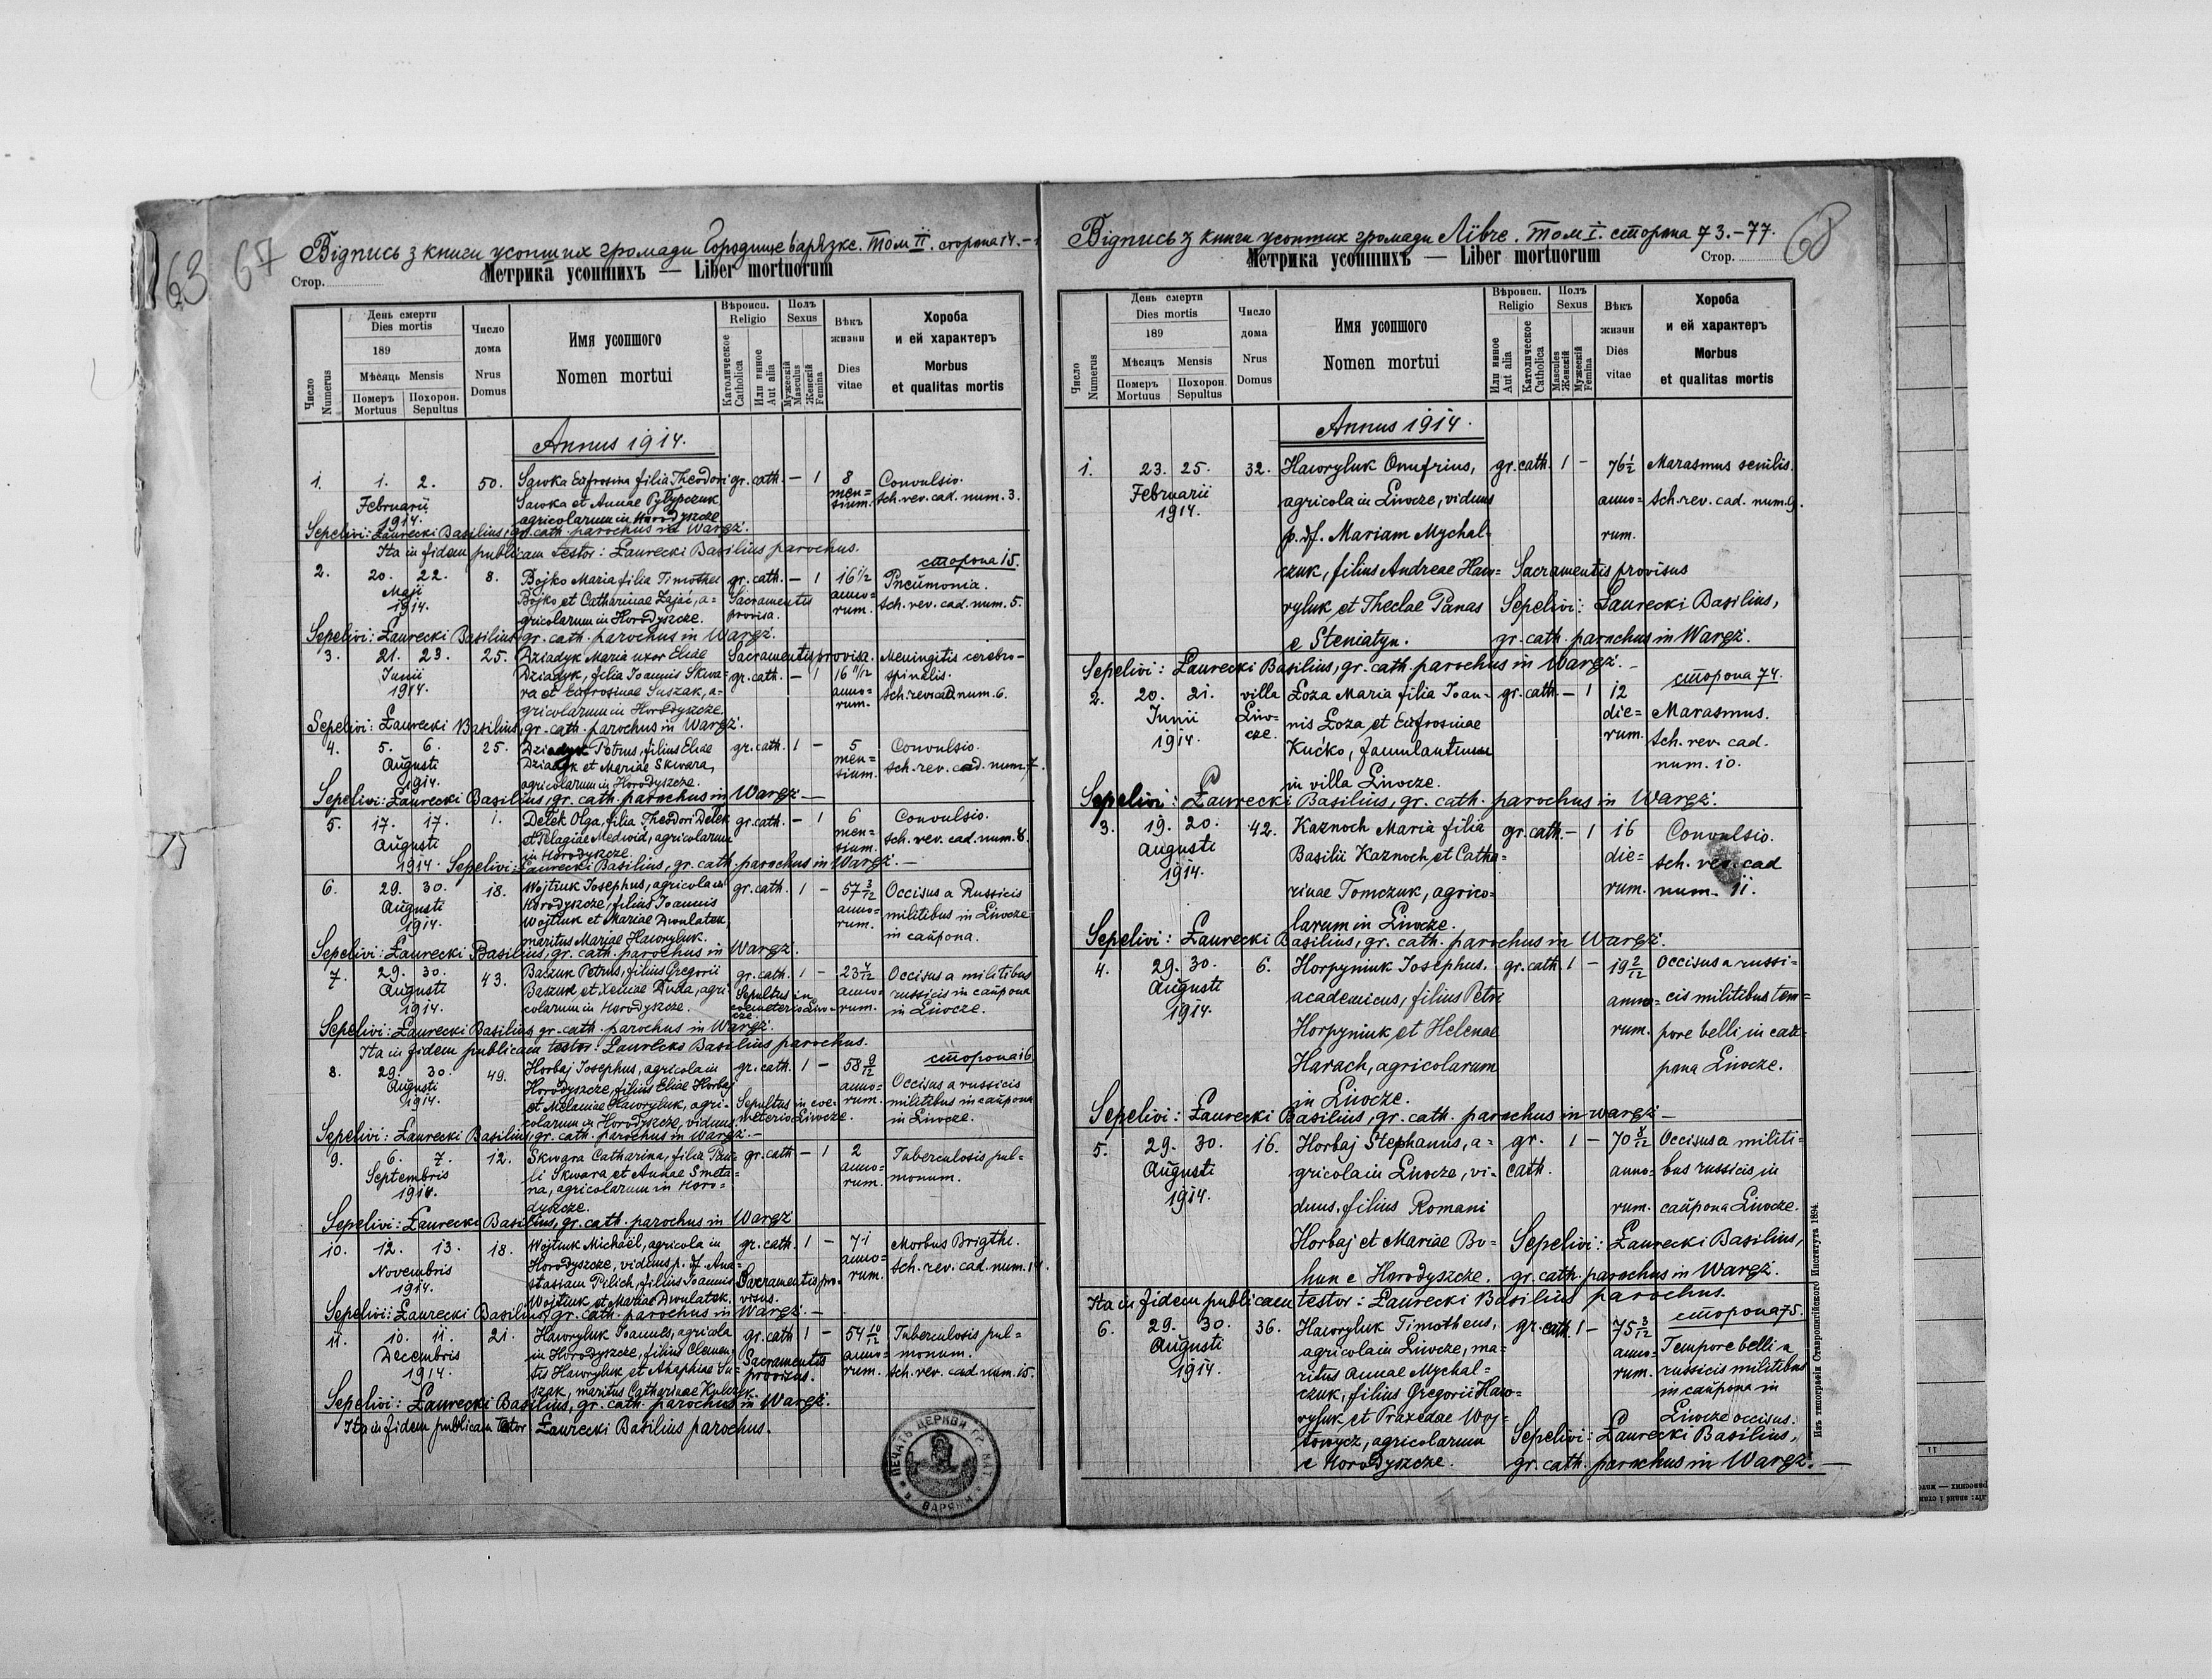 63 67
Відпись з книги усопших громади Городище варязке. Том II. сторона 14.-
Стор.
Метрика усопшихъ — Liber mortuorum
Число Numerus
День смерти Dies mortis
189
Мѣсяць Mensis
Померъ Mortuus
Похорон. Sepultus
Число дома Nrus Domus
Имя усопшого
Nomen mortui
Вѣроисп. Religio
Католическое Catholica
Или инное Aut alia
Полъ Sexus
Мужескій Masculus
Женскій Femina
Вѣкъ жизни Dies vitae
Хороба и ей характеръ
Morbus et qualitas mortis
Annus 1914.
1. 1. 2. Februarii 1914. 50. Sawka Eufrosina filia Theodori gr. cath. — 1 8 mensium. Convulsio.
Sawka et Annae Pylypczuk sch. rev. cad. num. 3.
agricolarum in Horodyszcze
Sepelivi: Ławrecki Basilius, gr. cath. parochus in Waręż.
Ita in fidem publicam testor: Ławrecki Basilius parochus.
сторона 15.
2. 20. 22. Maji 1914. 8. Bojko Maria filia Timothei gr. cath. — 1 16 1/2 annorum. Pneumonia.
Bojko et Catharinae Zając, a= Sacramentis sch. rev. cad. num. 5.
gricolarum in Horodyszcze. provisa.
Sepelivi: Ławrecki Basilius gr. cath. parochus in Waręż.
3. 21. 23. Junii 1914. 25. Dziadyk Maria uxor Eliae Sacramentis provisa. Meningitis cerebro-
Dziadyk, filia Ioannis Skwa= gr. cath. — 1 16 11/12 annorum. spinalis.
ra et Eufrosinae Suszak, a= sch. rev. cad. num. 6.
gricolarum in Horodyszcze.
Sepelivi: Ławrecki Basilius, gr. cath. parochus in Waręż.
4. 5. 6. Augusti 1914. 25. Dziadyk Petrus, filius Eliae gr. cath. 1 — 5 mensium. Convulsio.
Dziadyk et Mariae Skwara, sch. rev. cad. num. 7.
agricolarum in Horodyszcze.
Sepelivi: Ławrecki Basilius, gr. cath. parochus in Waręż —
5. 17. 17. Augusti 1914. 1. Detek Olga, filia Theodori Detek gr. cath. — 1 6 mensium. Convulsio.
et Pelagiae Medwid, agricolarum sch. rev. cad. num. 8.
in Horodyszcze.
Sepelivi: Ławrecki Basilius, gr. cath. parochus in Waręż. —
6. 29. 30. Augusti 1914. 18. Wojtiuk Iosephus, agricola in gr. cath. 1 — 57 3/12 annorum. Occisus a Russicis
Horodyszcze, filius Ioannis militibus in Liwcze
Wojtiuk et Mariae Dwulatek in caupona.
maritus Mariae Hawryluk.
Sepelivi: Ławrecki Basilius, gr. cath. parochus in Waręż.
7. 29. 30. Augusti 1914. 43. Baszuk Petrus, filius Gregorii gr. cath. 1 — 23 annorum. Occisus a militibus
Baszuk et Xeniae, agri Sepultus in russicis in caupona
colarum in Horodyszcze. coemeterio Liwcze. in Liwcze.
Sepelivi: Ławrecki Basilius gr. cath. parochus in Waręż.
Ita in fidem publicam testor: Ławrecki Basilius parochus.
сторона 16
8. 29. 30. Augusti 1914. 49. Horbaj Iosephus, agricola in gr. cath. 1 — 58 9/12 annorum.
Horodyszcze, filius Eliae Horbaj Occisus a russicis
et Melaniae Hawryluk, agri- Sepultus in coe= militibus in caupona
colarum in Horodyszcze, viduus. meterio Liwcze. in Liwcze.
Sepelivi: Ławrecki Basilius, gr. cath. parochus in Waręż. —
9. 6. 7. Septembris 1914. 12. Skwara Catharina, filia Pau= gr. cath — 1 2 annorum. Tuberculosis pul=
li Skwara et Annae Smeta= monum.
na, agricolarum in Horo=
dyszcze.
Sepelivi: Ławrecki Basilius, gr. cath. parochus in Waręż
10. 12. 13. Novembris 1914. 18. Wojtiuk Michaël, agricola in gr. cath. 1 — 71 annorum. Morbus Brigthi.
Horodyszcze, viduus p. df. Ana= sch. rev. cad. num. 14.
stasiam Pilich, filius Ioannis Sacramentis pro=
Wojtiuk et Mariae Dwulatek. visus.
Sepelivi: Ławrecki Basilius, gr. cath. parochus in Waręż. —
11. 10. 11. Decembris 1914. 21. Hawryluk Ioannes, agricola gr. cath 1 — 54 10/12 annorum. Tuberculosis pul=
in Horodyszcze, filius Clemen= monum.
tis Hawryluk et Ahaphiae Su= Sacramentis sch. rev. cad. num. 15.
szak, maritus Catharinae Kulczyk. provisus.
Sepelivi: Ławrecki Basilius, gr. cath. parochus in Waręż.
Ita in fidem publicam testor: Ławrecki Basilius parochus.
ПЕЧАТЬ ЦЕРКВИ ГР. КАТ. В ВАРЯЖИ
Відпись з книги усопших громади Лівче. Том I. сторона 73.-77.
68
Метрика усопшихъ — Liber mortuorum
Стор.
Число Numerus
День смерти Dies mortis
189
Мѣсяць Mensis
Померъ Mortuus
Похорон. Sepultus
Число дома Nrus Domus
Имя усопшого
Nomen mortui
Вѣроисп. Religio
Или инное Aut alia
Католическое Catholica
Полъ Sexus
Mascules Женскій
Мужескій Femina
Вѣкъ жизни Dies vitae
Хороба и ей характеръ
Morbus et qualitas mortis
Annus 1914.
1. 23. 25. Februarii 1914. 32. Hawryluk Onufrius, gr. cath. 1 — 76 1/2 annorum. Marasmus senilis.
agricola in Liwcze, viduus sch. rev. cad. num. 9.
p. df. Mariam Mychal=
czuk, filius Andreae Haw= Sacramentis provisus
ryluk et Theclae Panas Sepelivi: Ławrecki Basilius,
e Steniatyn. gr. cath. parochus in Waręż.
Sepelivi: Ławrecki Basilius, gr. cath. parochus in Waręż. —
сторона 74.
2. 20. 21. Junii 1914. villa Liwcze. Łoza Maria filia Ioan= gr. cath. — 1 12 dierum.
nis Łoza et Eufrosinae Marasmus.
Kućko, famulantium sch. rev. cad.
in villa Liwcze. num. 10.
Sepelivi: Ławrecki Basilius, gr. cath. parochus in Waręż.
3. 19. 20. Augusti 1914. 42. Kaznoch Maria filia gr. cath. — 1 16 dierum. Convulsio.
Basilii Kaznoch, et Catha= sch. rev. cad
rinae Tomczuk, agrico= num. 11.
larum in Liwcze.
Sepelivi: Ławrecki Basilius, gr. cath. parochus in Waręż.
4. 29. 30. Augusti 1914. 6. Horpyniuk Iosephus, gr. cath. 1 — 19 2/12 annorum. Occisus a russi=
academicus, filius Petri cis militibus tem=
Horpyniuk et Helenae pore belli in cau=
Harach, agricolarum pona Liwcze.
in Liwcze.
Sepelivi: Ławrecki Basilius, gr. cath. parochus in Waręż —
5. 29. 30. Augusti 1914. 16. Horbaj Stephanus, a= gr. cath. 1 — 70 8/12 annorum. Occisus a militi=
gricola in Liwcze, vi= bus russicis in
duus, filius Romani caupona Liwcze.
Horbaj et Mariae Bo= Sepelivi: Ławrecki Basilius,
hun e Horodyszcze. gr. cath. parochus in Waręż.
Ita in fidem publicam testor: Ławrecki Basilius parochus.
сторона 75.
6. 29. 30. Augusti 1914. 36. Hawryluk Timotheus, gr. cath. 1 — 75 3/12 annorum.
agricola in Liwcze, ma= Tempore belli a
ritus Annae Mychal= russicis militibus
czuk, filius Gregorii Haw= in caupona in
ryluk et Praxedae Woj= Liwcze occisus.
towycz, agricolarum Sepelivi: Ławrecki Basilius,
e Horodyszcze. gr. cath. parochus in Waręż. —
Изъ типографіи Ставропигійского Института 1894.